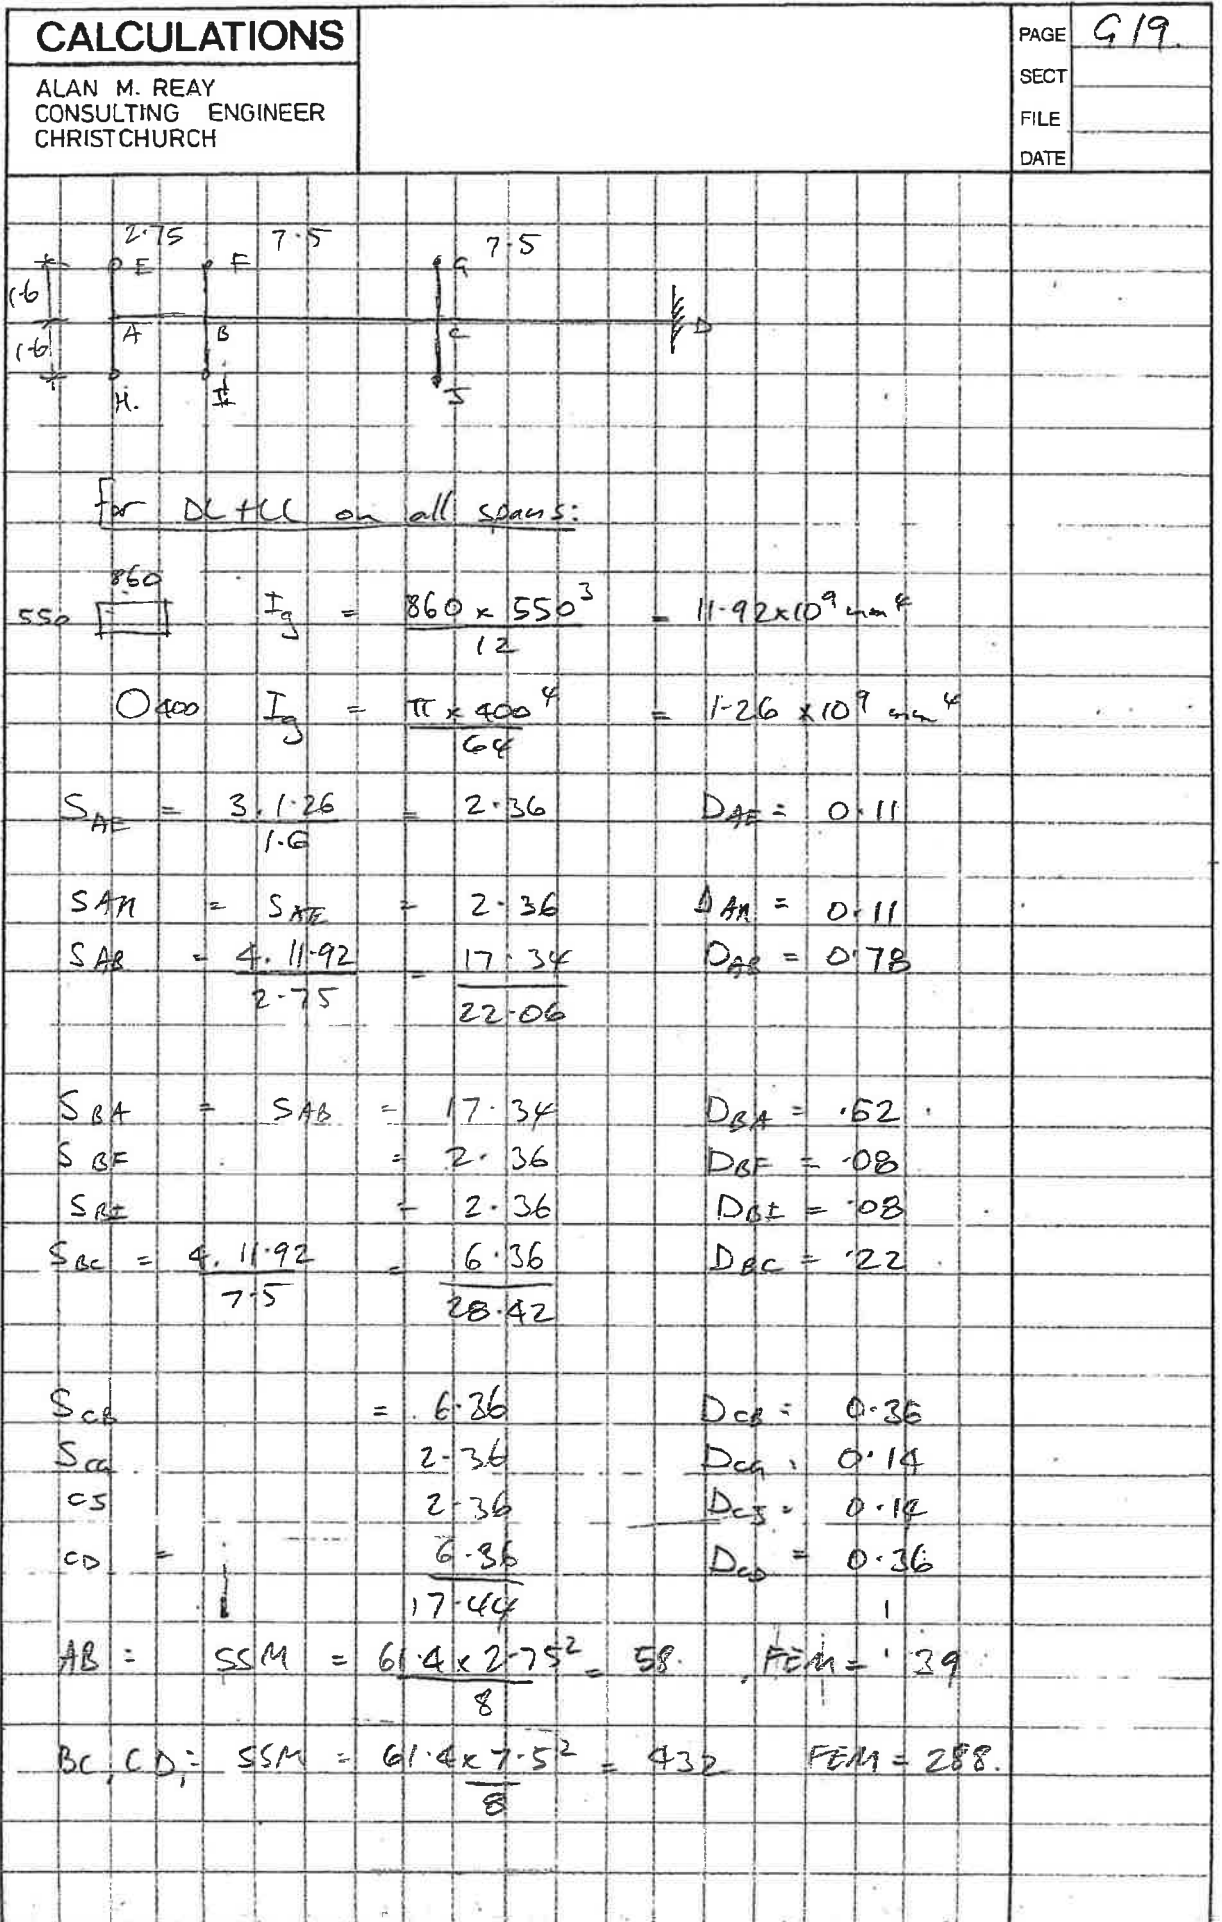 CALCULATIONS
ALAN M. REAY
CONSULTING ENGINEER
CHRISTCHURCH
PAGE G19.
SECT
FILE
DATE
2.75 7.5 7.5
E F G
1.6
A B C D
1.6
H. I J
for DL+LL on all spans:
860
550 Ig = 860 x 550³ / 12 = 11.92x10⁹ mm⁴
O 400 Ig = π x 400⁴ / 64 = 1.26 x10⁹ mm⁴
SAE = 3.1.26 / 1.6 = 2.36 DAE = 0.11
SAH = SAE = 2.36 DAH = 0.11
SAB = 4.11.92 / 2.75 = 17.34 DAB = 0.78
22.06
SBA = SAB = 17.34 DBA = .62
SBF = 2.36 DBF = .08
SBI = 2.36 DBI = .08
SBC = 4.11.92 / 7.5 = 6.36 DBC = .22
28.42
SCB = 6.36 DCB = 0.36
SCG 2.36 DCG = 0.14
CJ 2.36 DCJ = 0.14
CD = 6.36 DCD = 0.36
17.44 1
AB = SSM = 61.4 x 2.75² / 8 = 58. FEM = 39
BC, CD, = SSM = 61.4 x 7.5² / 8 = 432 FEM = 288.